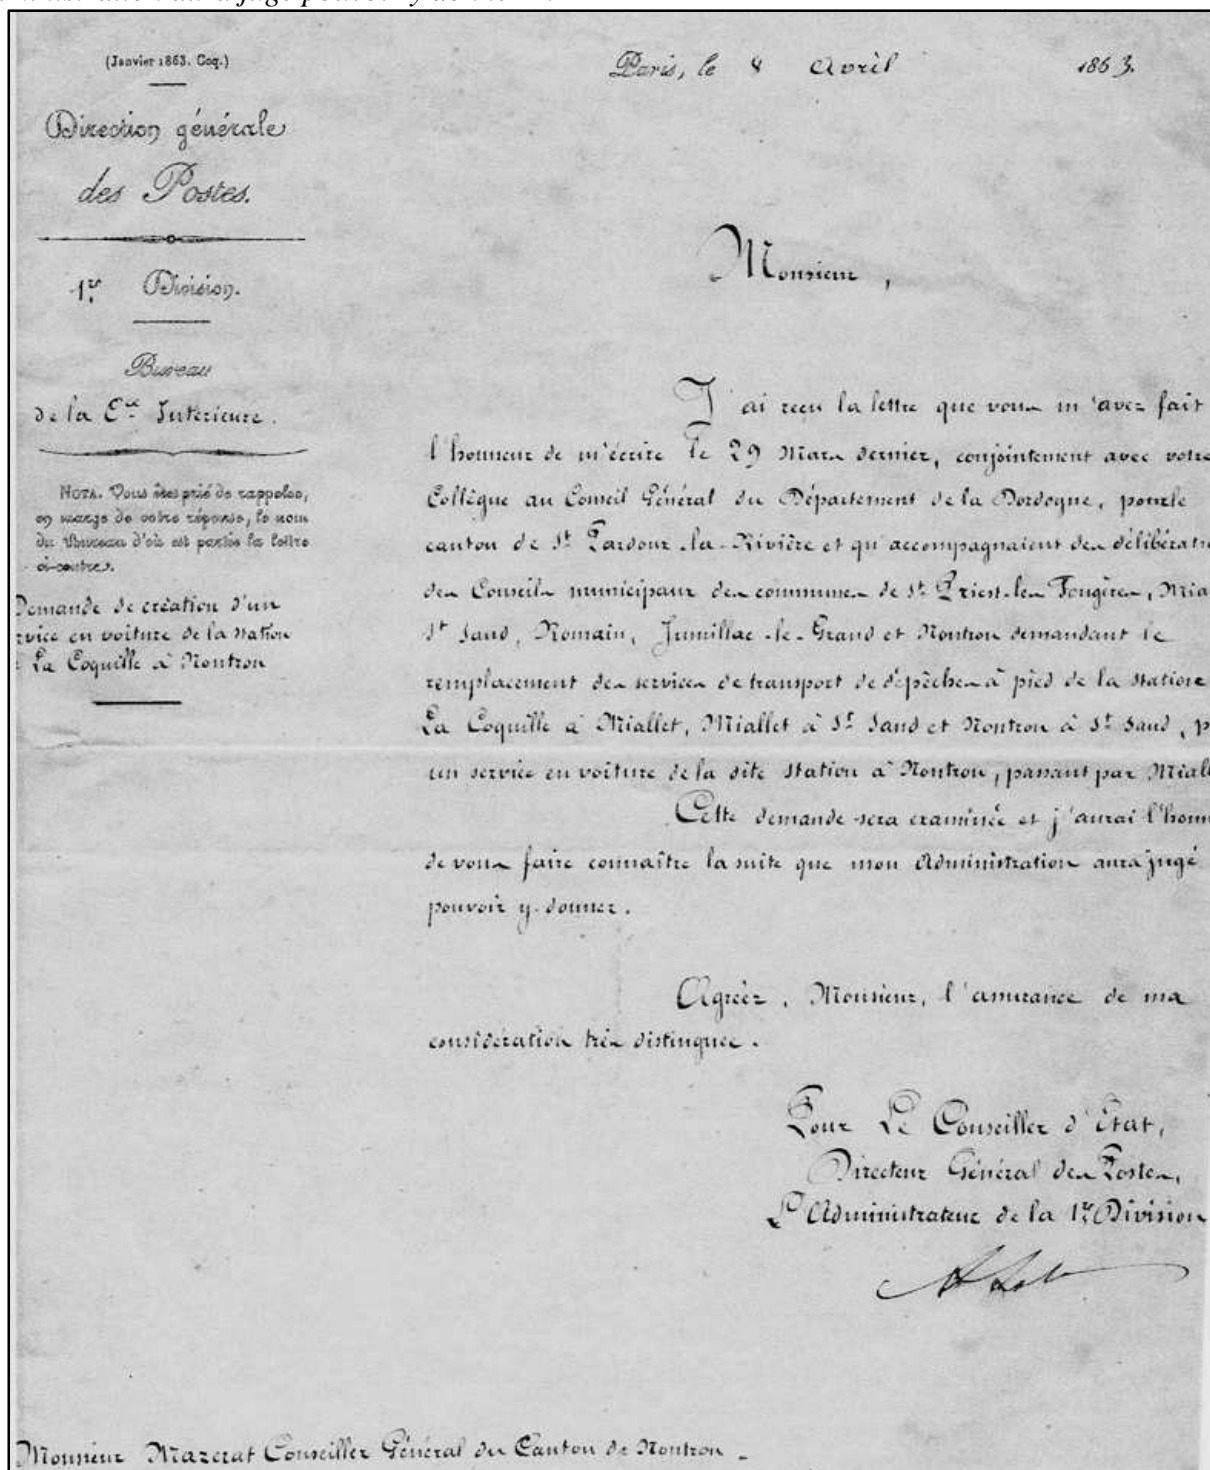 (Janvier 1863. Coq.)
Direction générale
des Postes.
1re Division.
Bureau
de la Cce Intérieure.
NOTA. Vous êtes prié de rappeler,
en marge de votre réponse, le nom
du Bureau d'où est partie la lettre
ci-contre.
Demande de création d'un
rvice en voiture de la station
La Coquille à Nontron
Paris, le 8 Avril 1863.
Monsieur,
J'ai reçu la lettre que vous m'avez fait
l'honneur de m'écrire le 29 Mars dernier, conjointement avec votre
Collègue au Conseil Général du Département de la Dordogne, pour le
canton de St Pardoux-la-Rivière et qu'accompagnaient des délibérati
des Conseils municipaux des communes de St Priest-les-Fougères, Mia
St Saud, Romain, Jumillac-le-Grand et Nontron demandant le
remplacement des services de transport de dépêches à pied de la station
La Coquille à Miallet, Miallet à St Saud et Nontron à St Saud, p
un service en voiture de la dite station à Nontron, passant par Miall
Cette demande sera examinée et j'aurai l'honn
de vous faire connaître la suite que mon Administration aura jugé
pouvoir y donner.
Agréez, Monsieur, l'assurance de ma
considération très distinguée.
Pour Le Conseiller d'État,
Directeur Général des Postes,
L'Administrateur de la 1re Division
Monsieur Mazerat Conseiller Général du Canton de Nontron